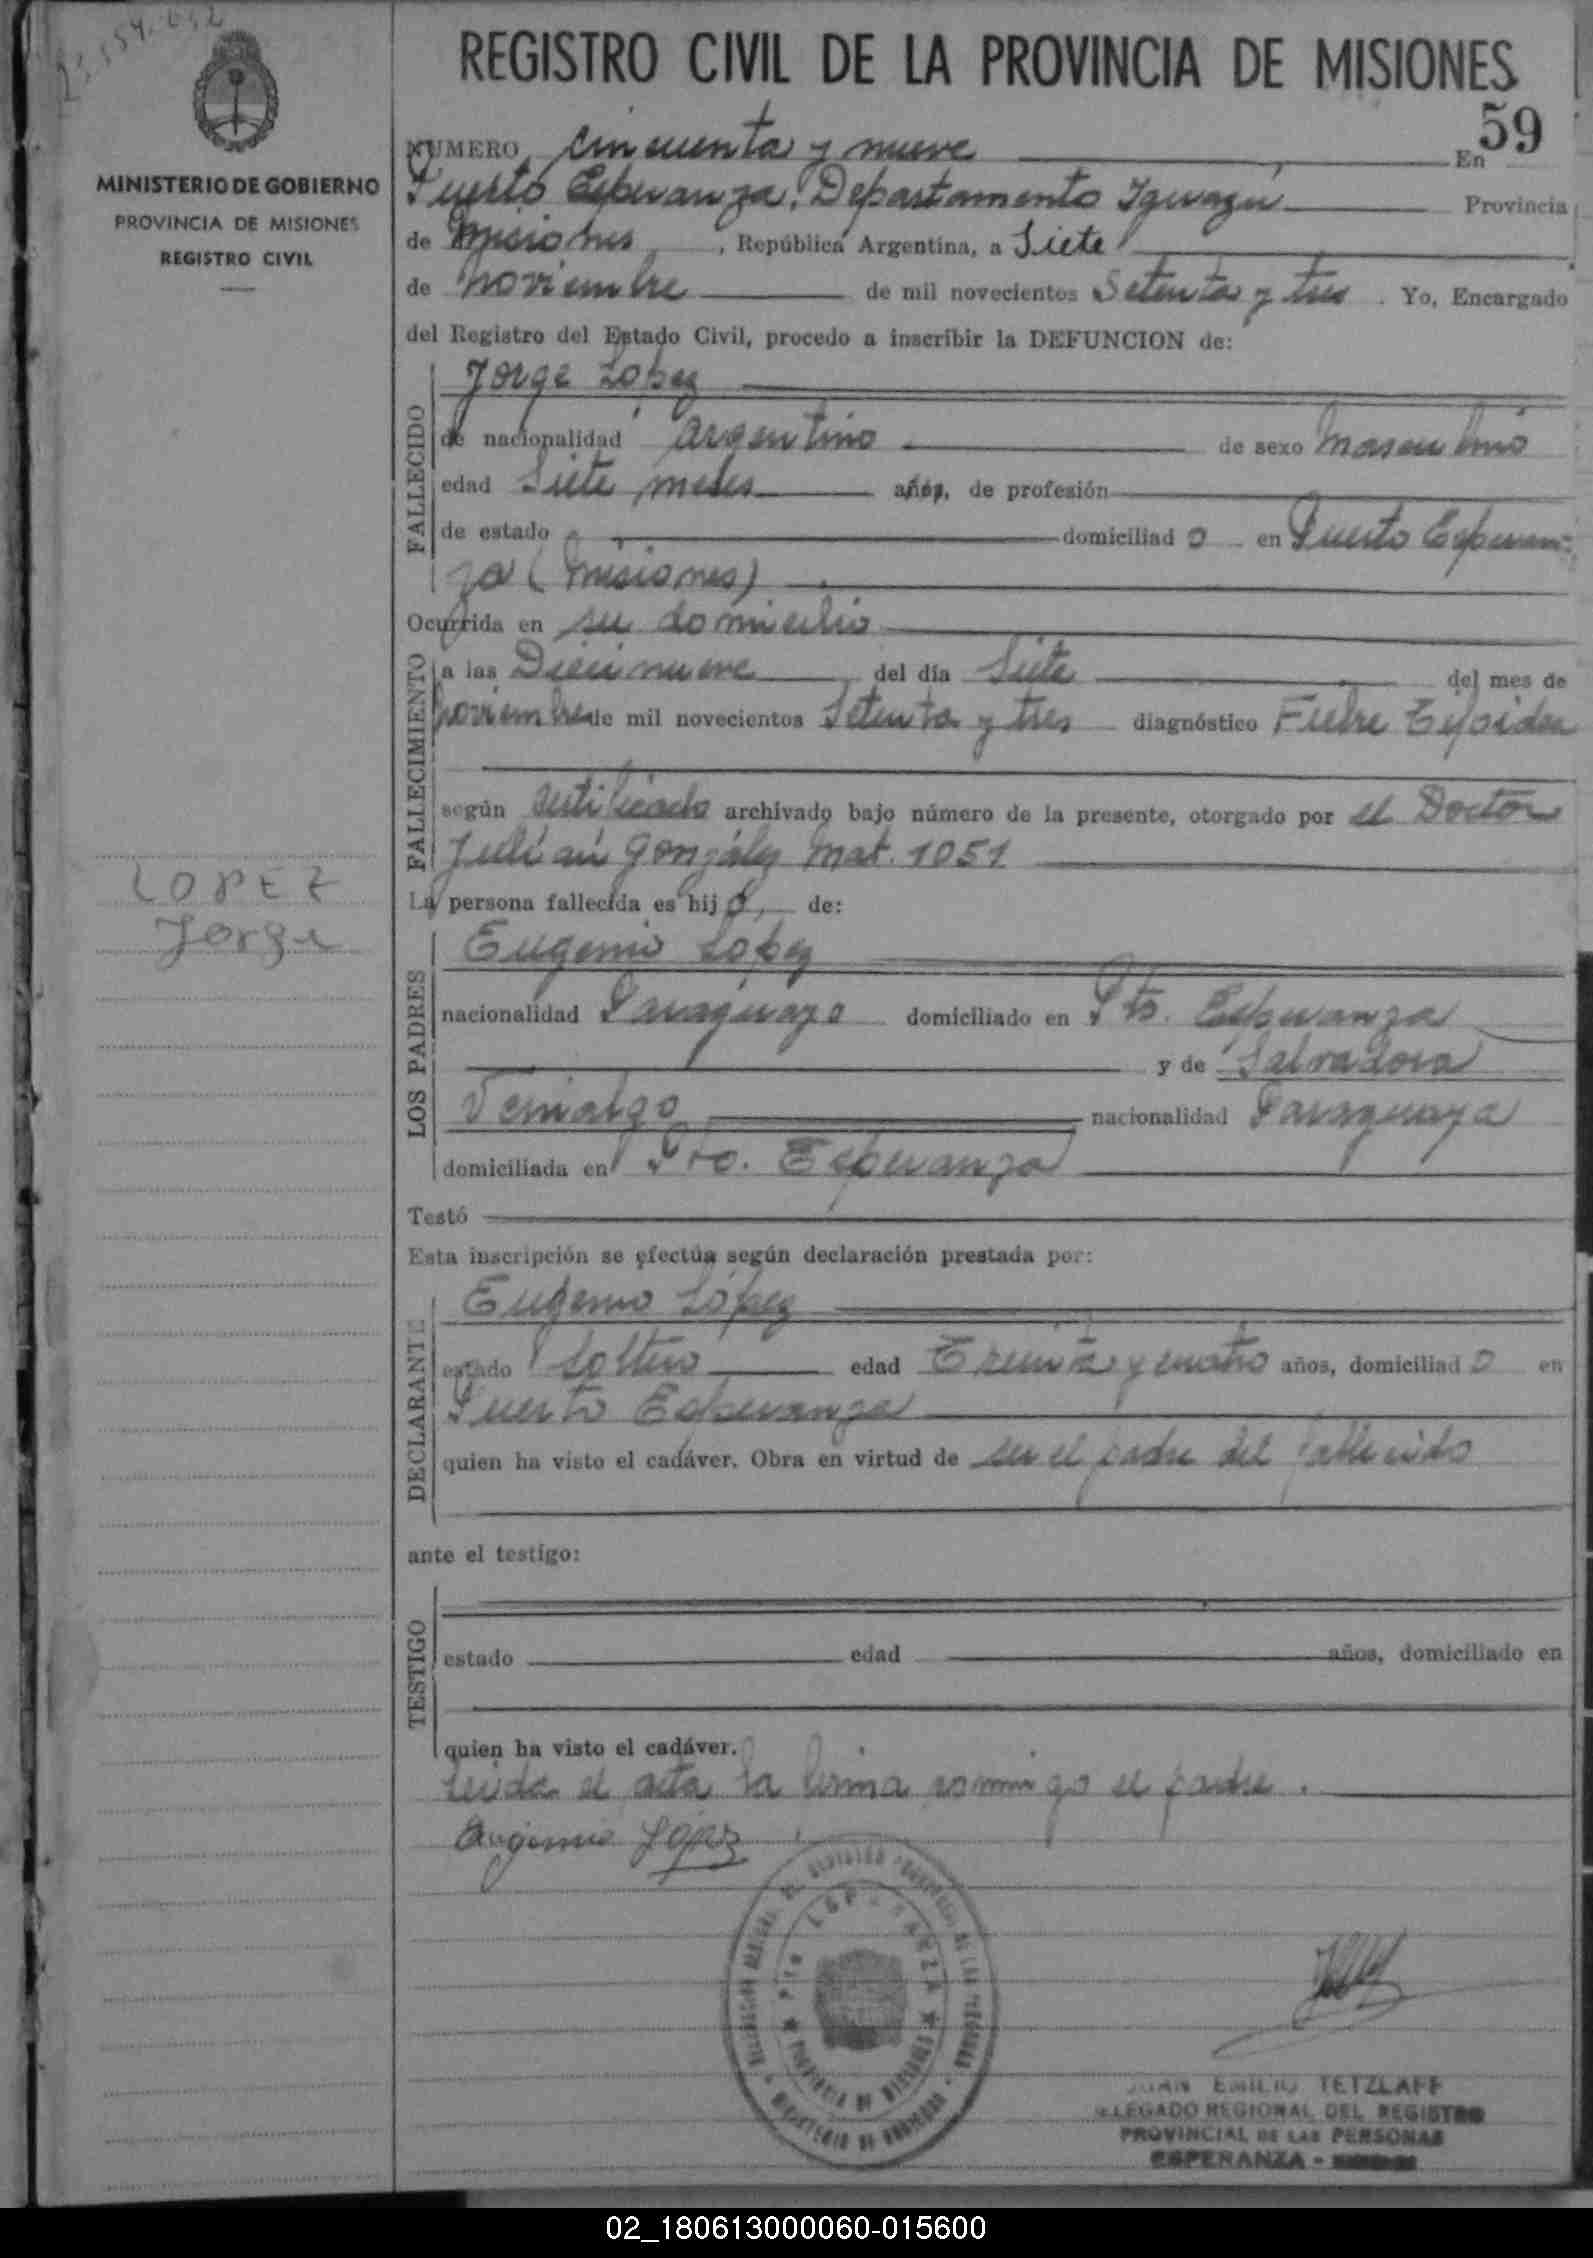 REGISTRO CIVIL DE LA PROVINCIA DE MISIONES
59
MINISTERIO DE GOBIERNO
PROVINCIA DE MISIONES
REGISTRO CIVIL
NUMERO cincuenta y nueve En
Puerto Esperanza, Departamento Iguazú Provincia
de Misiones, República Argentina, a Siete
de noviembre de mil novecientos Setenta y tres. Yo, Encargado
del Registro del Estado Civil, procedo a inscribir la DEFUNCION de:
FALLECIDO
Jorge López
de nacionalidad argentino de sexo masculino
edad Siete meses años, de profesión
de estado domiciliado en Puerto Esperan-
za (Misiones)
Ocurrida en su domicilio
FALLECIMIENTO
a las Diecinueve del día Siete del mes de
noviembre de mil novecientos Setenta y tres diagnóstico Fiebre Tifoidea
según certificado archivado bajo número de la presente, otorgado por el Doctor
Julián González Mat. 1051
LOPEZ
Jorge
La persona fallecida es hijo, de:
LOS PADRES
Eugenio López
nacionalidad Paraguayo domiciliado en Pto. Esperanza
y de Salvadora
Vernalgo nacionalidad Paraguaya
domiciliada en Pto. Esperanza
Testó
Esta inscripción se efectúa según declaración prestada por:
DECLARANTE
Eugenio López
estado Soltero edad Treinta y cuatro años, domiciliado en
Puerto Esperanza
quien ha visto el cadáver. Obra en virtud de ser el padre del fallecido
ante el testigo:
TESTIGO
estado edad años, domiciliado en
quien ha visto el cadáver.
Leída el acta la firma conmigo el padre.
Eugenio López
PTO ESPERANZA
PROVINCIA DE MISIONES
MINISTERIO DE GOBIERNO
JUAN EMILIO TETZLAFF
DELEGADO REGIONAL DEL REGISTRO
PROVINCIAL DE LAS PERSONAS
ESPERANZA -
02_180613000060-015600